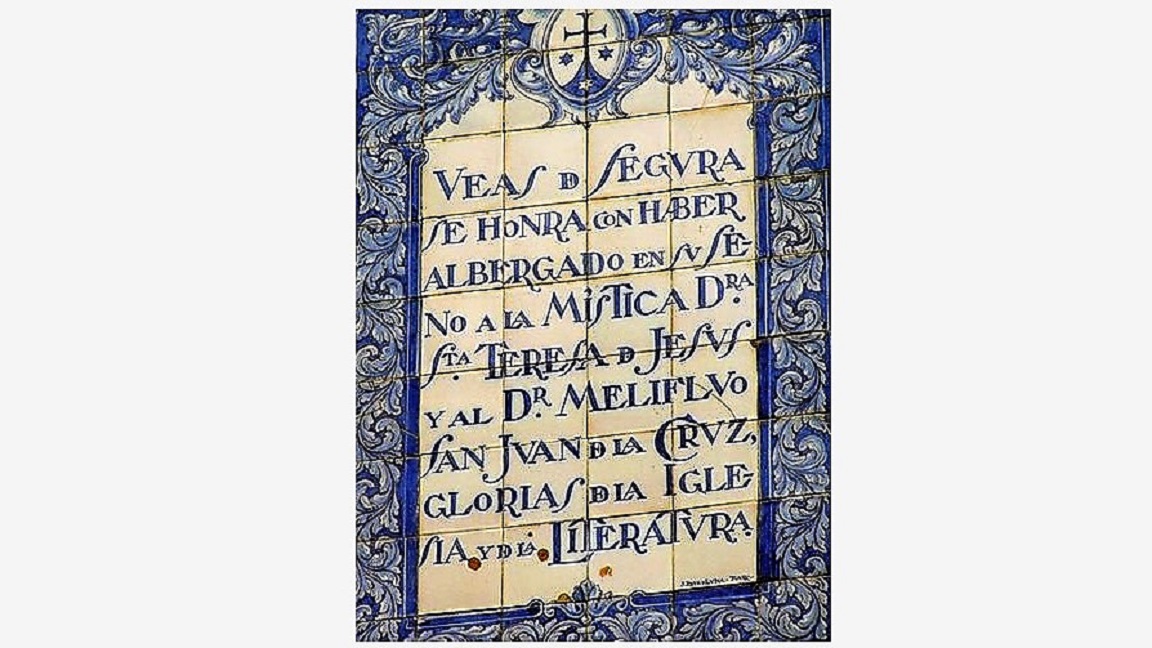 VEAS D SEGVRA
SE HONRA CON HABER
ALBERGADO EN SV SE-
NO A LA MÍSTICA DRA.
STA. TERESA D JESVS
Y AL DR. MELIFLVO
SAN JVAN D LA CRVZ,
GLORIAS D LA IGLE-
SIA Y D LA LITERATVRA.